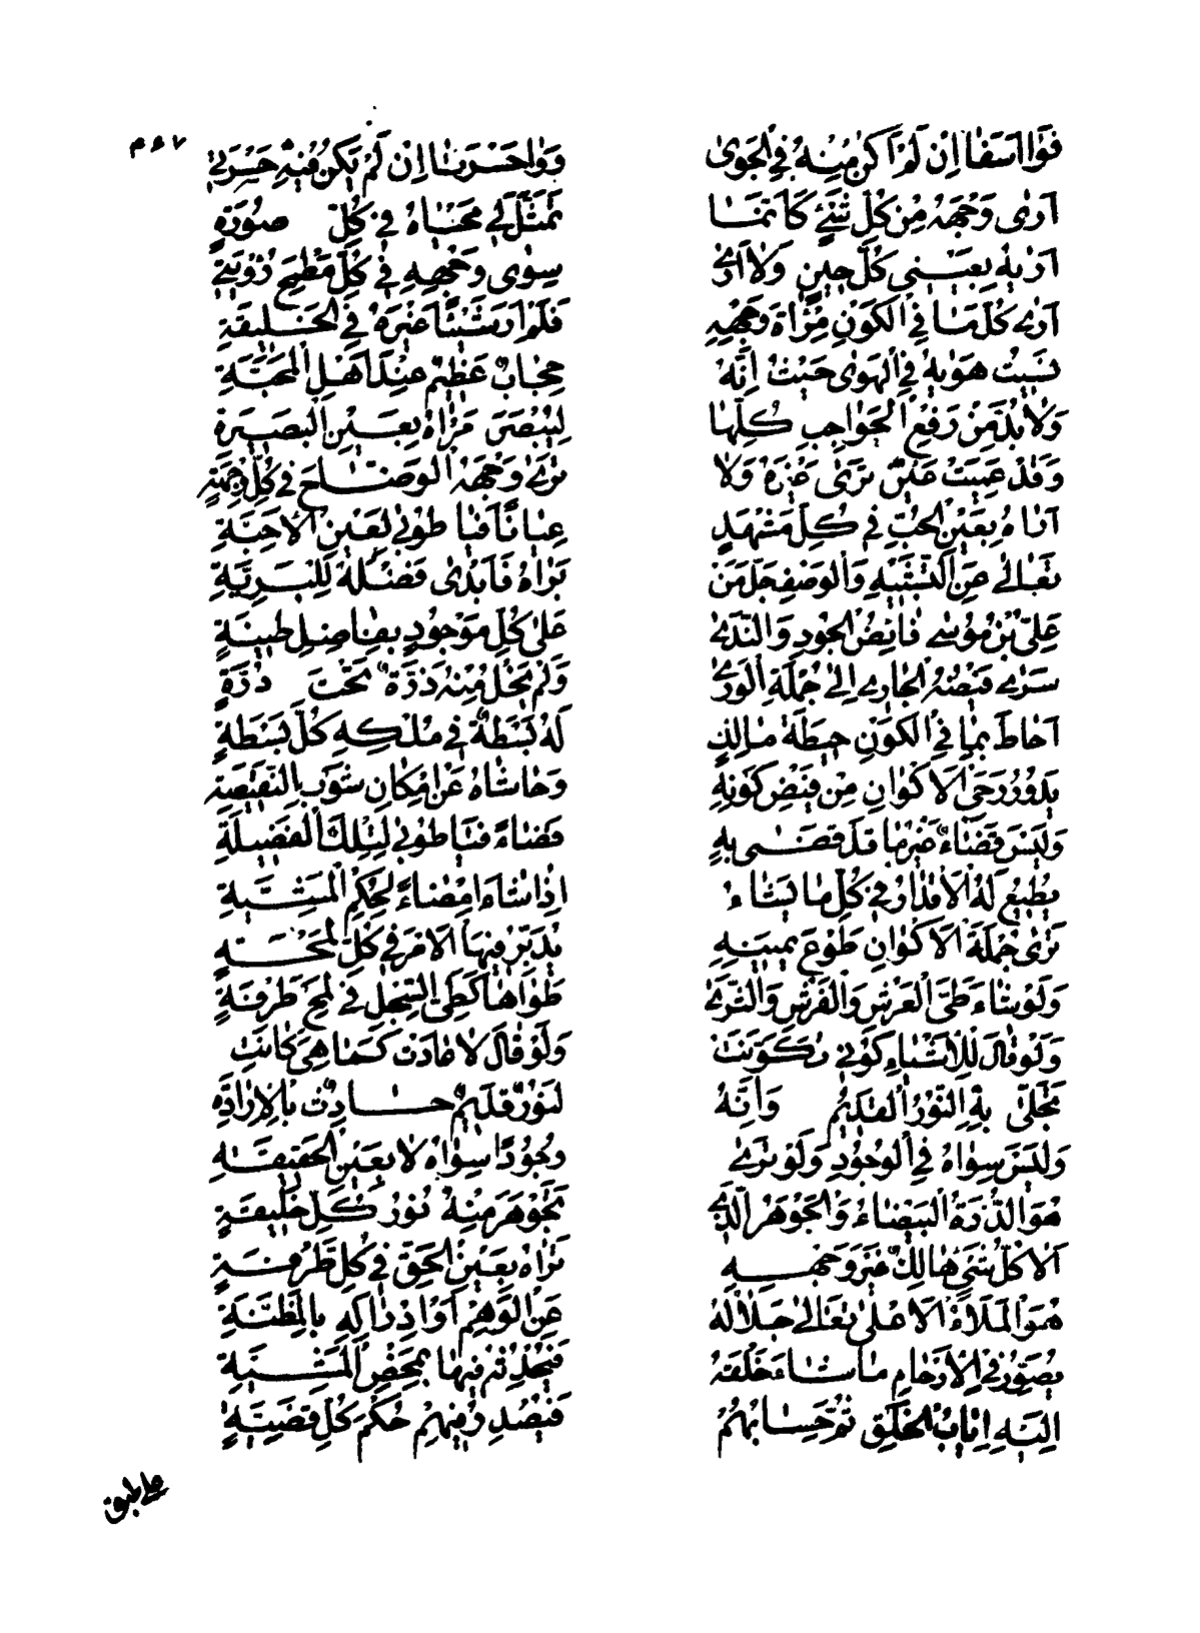 ٧ ٤ م
فَوَا اَسَفَا اِن لَمْ اَكُن مِنهُ فِي الجَوىٰ وَوَا حَسْرَتَا اِن لَمْ يَكُن فِيهِ حَسْرَتِي
اَرىٰ وَجهَهُ مِن كُلِّ شَيْءٍ كَاَنَّمَا تَمَثَّلَ لِي مَحْيَاهُ فِي كُلِّ صُورَةٍ
اَرَيهُ بِعَيْنِي كُلَّ حِينٍ وَلَا اَرىٰ سِوىٰ وَجهِهِ فِي كُلِّ مَطْمَحِ رُؤيَتِي
اَرىٰ كُلَّ مَا فِي الكَوْنِ مِرْاٰةَ وَجهِهِ فَلَمْ اَرَ شَيْئًا غَيْرَهُ فِي الخَلِيقَةِ
نَسِيتُ هَوَايهُ فِي الهَوىٰ حَيْثُ اِنَّهُ حِجَابٌ عَظِيمٌ عِندَ اَهْلِ المَحَبَّةِ
وَلَا بُدَّ مِنْ رَفْعِ الحَوَاجِبِ كُلِّهَا مَرْاٰهُ بِعَيْنِ البَصِيرَةِ
وَقَدْ عَمِيَتْ عَيْنٌ تَرىٰ غَيْرَهُ وَلَا تَرىٰ وَجهَهُ الوَضَّاحَ فِي كُلِّ وِجهَةٍ
اَنَا بِعَيْنِ الحُبِّ فِي كُلِّ مَشْهَدٍ عِيَانًا فَيَا طُوبىٰ لِعَيْنِ الاَحِبَّةِ
تَعَالىٰ عَنِ التَّشْبِيهِ وَالوَصْفِ جَلَّ مَنْ بَرَاهُ فَاَبْدىٰ فَضْلَهُ لِلْبَرِيَّةِ
عَلِيُّ بْنُ مُوسىٰ فَائِضُ الجُودِ وَالنَّدىٰ عَلىٰ كُلِّ مَوْجُودٍ بِفَاضِلِ طِينَةٍ
سَرىٰ فَيْضُهُ الجَارِي اِلىٰ جُمْلَةِ الوَرىٰ وَلَمْ يَخْلُ مِنْهُ ذَرَّةٌ تَحْتَ ذَرَّةٍ
اَحَاطَ بِمَا فِي الكَوْنِ حِيطَةَ مَالِكٍ لَهُ بَسْطَةٌ فِي مُلْكِهِ كُلَّ بَسْطَةٍ
يَدُورُ رَحَى الاَكْوَانِ مِن فَيْضِ كَوْنِهِ وَحَاشَاهُ عَنْ اِمْكَانِ شَوْبِ النَّقِيصَةِ
وَلَيْسَ قَضَاءٌ غَيْرَ مَا قَدْ قَضىٰ بِهِ قَضَاءً فَيَا طُوبىٰ لِتِلْكَ الفَضِيلَةِ
يُطِيعُ لَهُ الاَقْدَارُ فِي كُلِّ مَا يَشَاءُ اِذَا شَاءَ اِمْضَاءً لِحُكْمِ المَشِيَّةِ
تَرىٰ جُمْلَةَ الاَكْوَانِ طَوْعَ يَمِينِهِ يُدَبِّرُ فِيهَا الاَمْرَ فِي كُلِّ لَمْحَةٍ
وَلَوْ شَاءَ طَيَّ العَرْشِ وَالفَرْشِ وَالثَّرىٰ طَوَاهَا كَطَيِّ السِّجِلِّ فِي لَمْحِ طَرْفَةٍ
وَلَوْ قَالَ لِلْاَشْيَاءِ كُونِي تَكَوَّنَتْ وَلَوْ قَالَ لَا عَادَتْ كَمَا هِيَ كَانَتِ
تَجَلّىٰ بِهِ النُّورُ القَدِيمُ وَاِنَّهُ لَنُورٌ قَدِيمٌ حَادِثٌ بِالاِرَادَةِ
وَلَيْسَ سِوَاهُ فِي الوُجُودِ وَلَوْ تَرىٰ وُجُودًا سِوَاهُ لَا بِعَيْنِ الحَقِيقَةِ
هُوَ الدُّرَّةُ البَيْضَاءُ وَالجَوْهَرُ الَّذِي تَجَوْهَرَ مِنْهُ نُورُ كُلِّ خَلِيقَةٍ
اَلَا كُلُّ شَيْءٍ هَالِكٌ غَيْرَ وَجهِهِ تَرَاهُ بِعَيْنِ الحَقِّ فِي كُلِّ طَرْفَةٍ
هُوَ المَلَاءُ الاَعْلىٰ تَعَالىٰ جَلَالُهُ عَنِ الوَهْمِ اَوْ اِدْرَاكِهِ بِالمَظِنَّةِ
يُصَوِّرُ فِي الاَرْحَامِ مَا شَاءَ خَلْقَهُ فِيهَا بِمَحْضِ المَشِيَّةِ
اِلَيْهِ اِيَابُ الخَلْقِ ثُمَّ حِسَابُهُمْ فَيَصْدُرُ فِيهِمْ حُكْمَ كُلِّ قَضِيَّةٍ